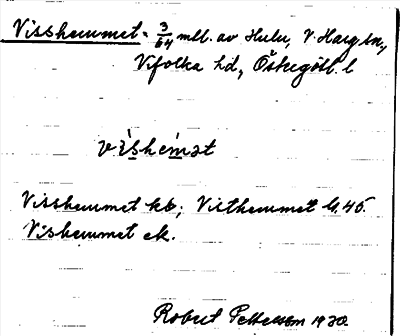 Visshemmet - 3/64 mtl. av Hulu, V. Harg sn,
Vifolka hd, Östergötl. l
víshèmət
Visshemmet kb; Visthemmet G. 45.
Vishemmet ek.
Robert Pettersson 1930